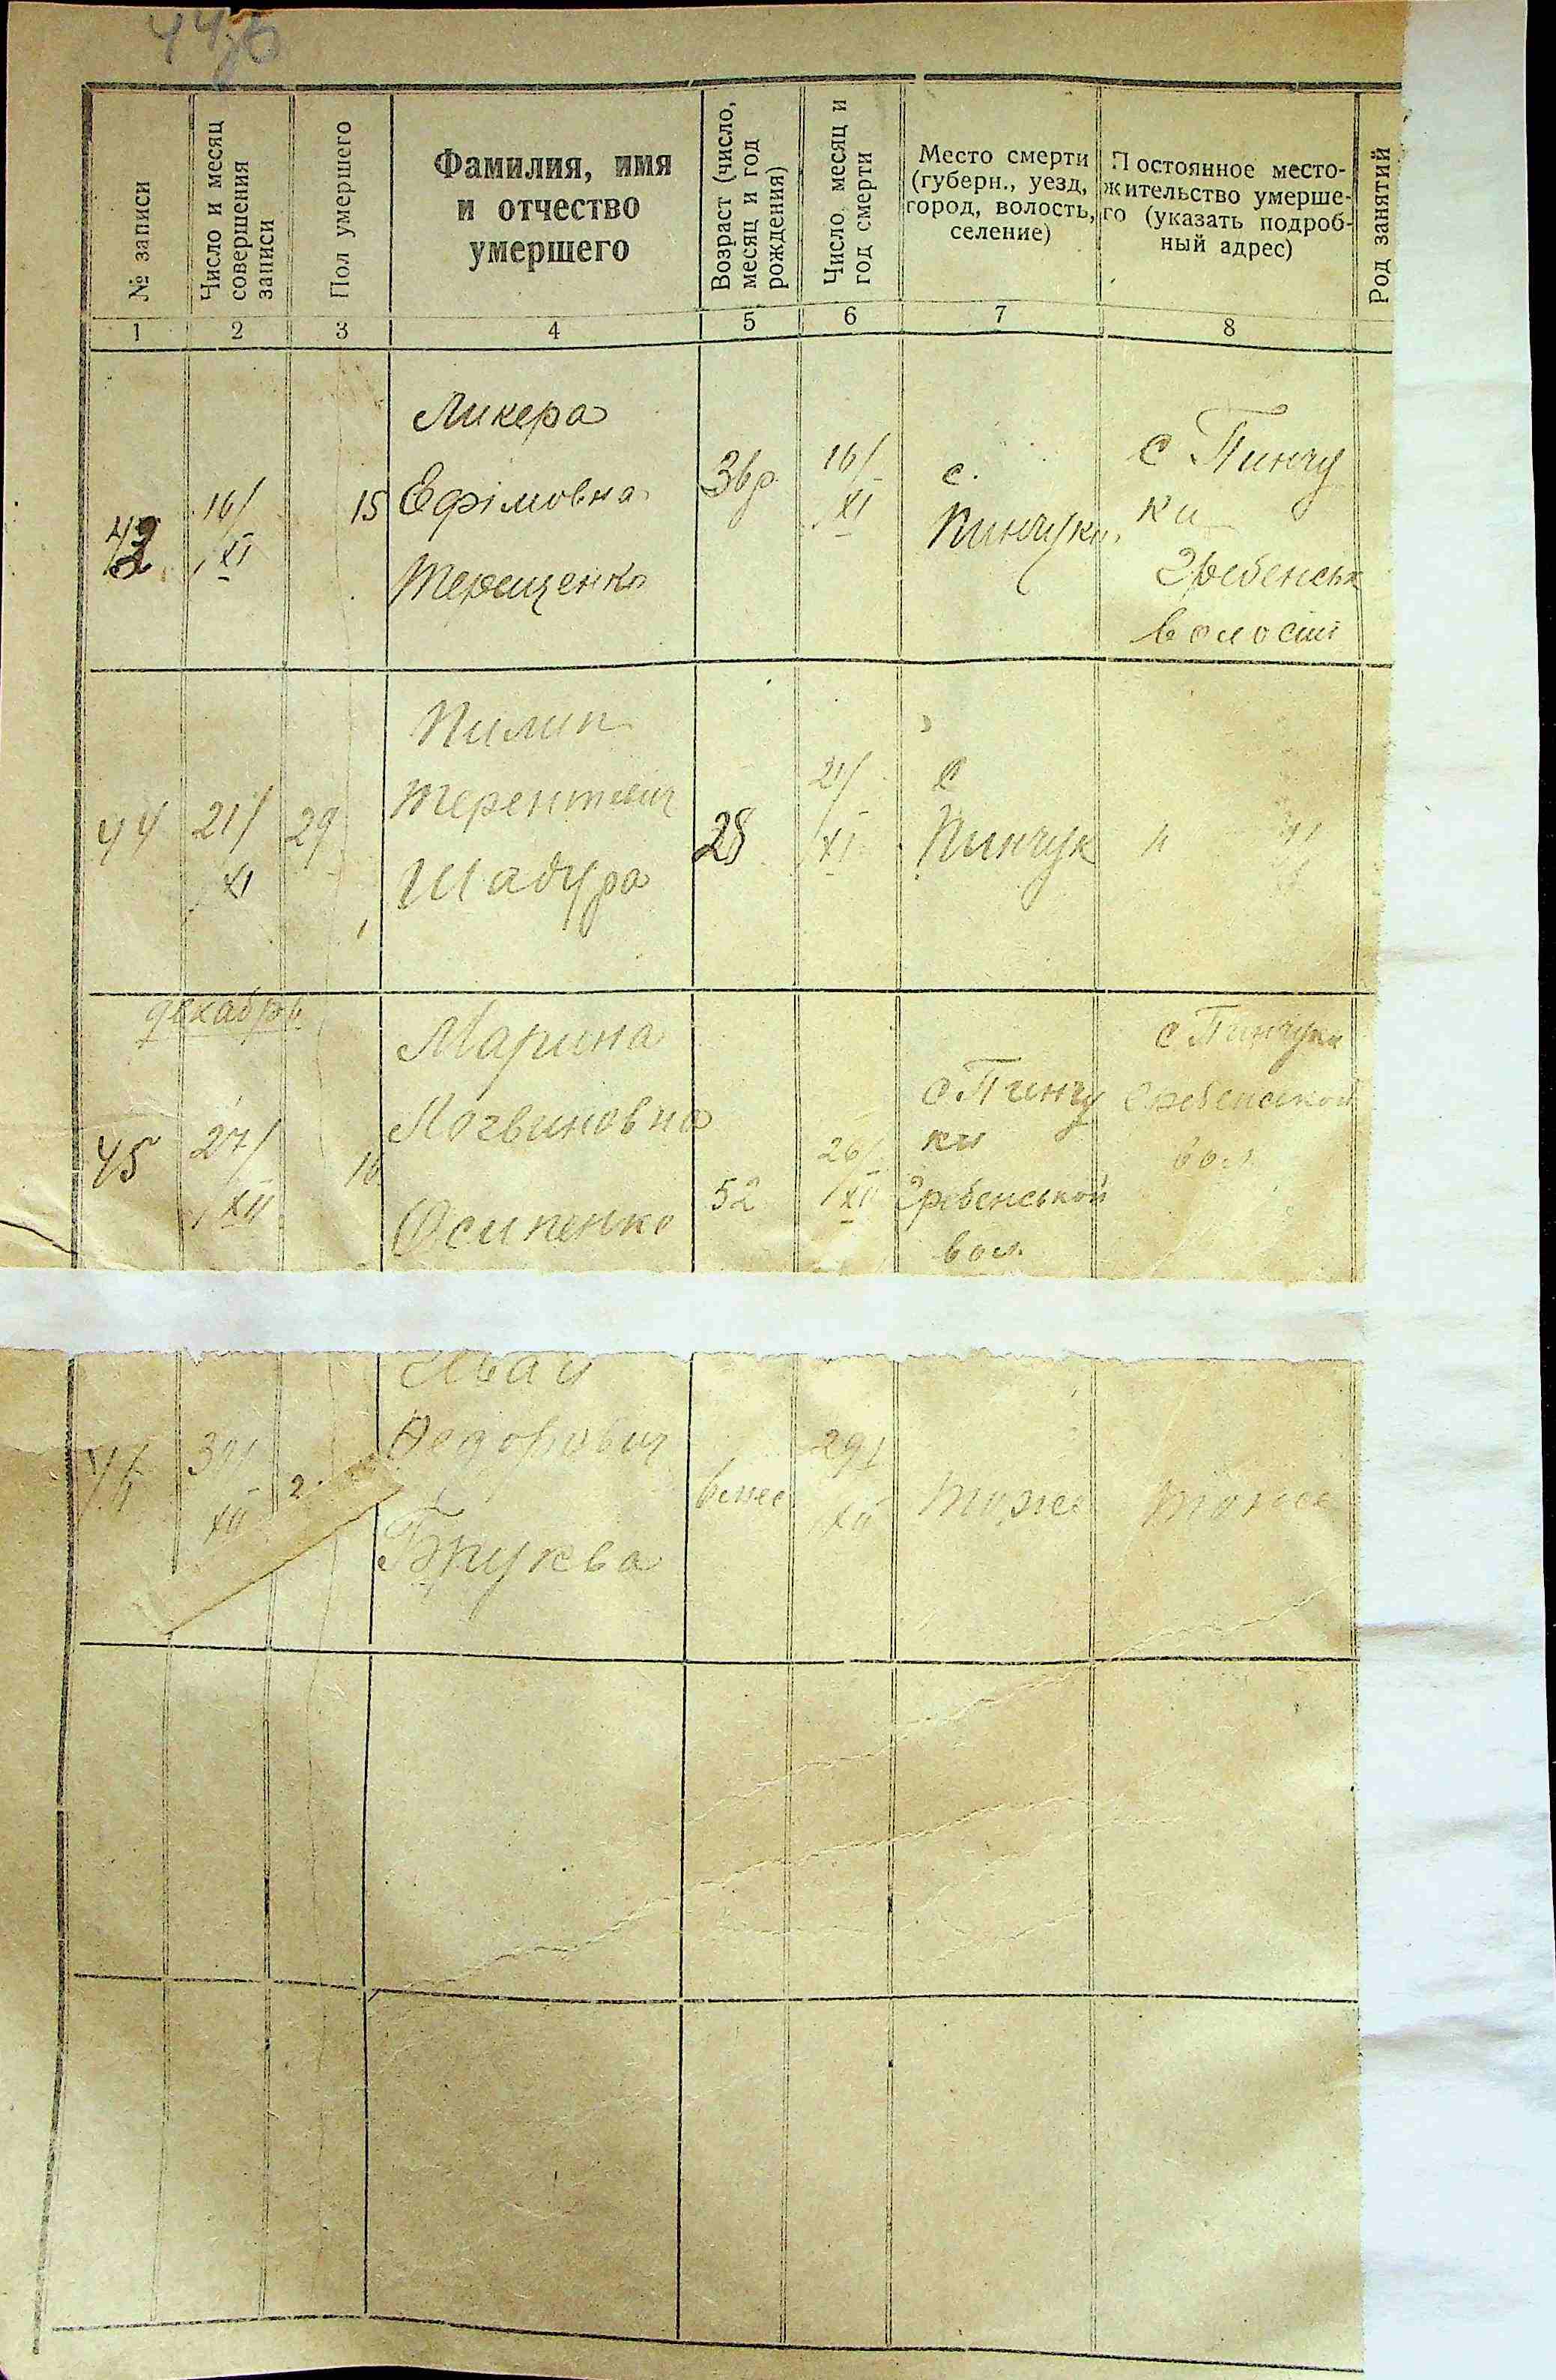 № записи
Число и месяц
совершения
записи
Пол умершего
Фамилия, имя
и отчество
умершего
Возраст (число,
месяц и год
рождения)
Число, месяц и
год смерти
Место смерти
(губерн., уезд,
город, волость,
селение)
Постоянное место-
жительство умерше-
го (указать подроб-
ный адрес)
Род занятий
1 2 3 4 5 6 7 8
43
16/XI
15
Ликера
Ефімовна
Терещенко
36 р.
16/XI
с.
Пинчуки
с Пинчу
ки
Гребенськ
волості
44
21/XI
29
Пилип
Терентиевич
Шадура
28
21/XI
с
Пинчук
" "
декабрь
45
27/XII
16
Марина
Логвиновна
Осипенко
52
26/XII
с Пинчу
ки
Гребенськой
вол.
с Пинчуки
Гребенской
вол
46
XII
2
Иван
Федорович
Бруква
29/XII
тоже
тоже